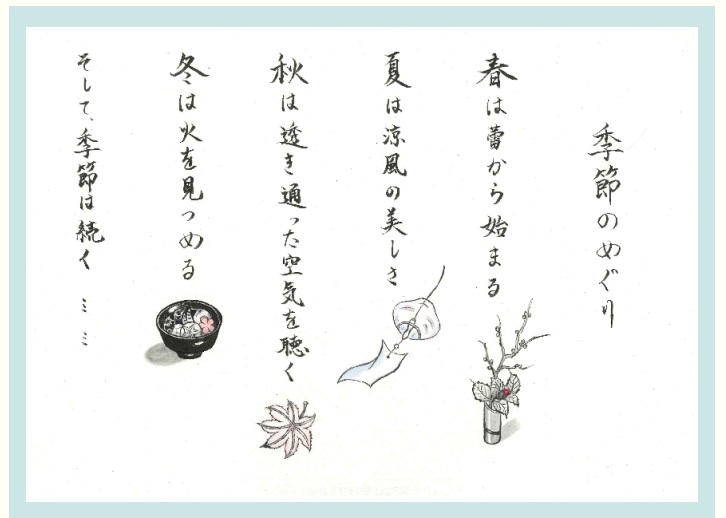 季節のめぐり
春は蕾から始まる
夏は涼風の美しさ
秋は透き通った空気を聴く
冬は火を見つめる
そして、季節は続く ミミ